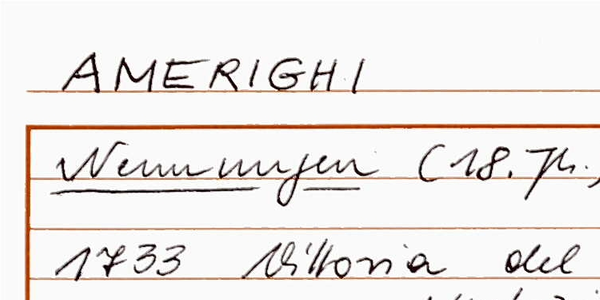 AMERIGHI
Nennungen (18. Jh.,
1733 Vittoria del